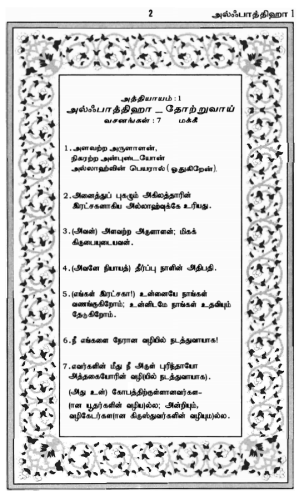 2
அல்ஃபாத்திஹா 1
அத்தியாயம் : 1
அல்ஃபாத்திஹா – தோற்றுவாய்
வசனங்கள் : 7 மக்கீ
1. அளவற்ற அருளாளன்,
நிகரற்ற அன்புடையோன்
அல்லாஹ்வின் பெயரால் (ஓதுகிறேன்).
2. அனைத்துப் புகழும் அகிலத்தாரின்
இரட்சகனாகிய அல்லாஹ்வுக்கே உரியது.
3. (அவன்) அளவற்ற அருளாளன்; மிகக்
கிருபையுடையவன்.
4. (அவனே நியாயத்) தீர்ப்பு நாளின் அதிபதி.
5. (எங்கள் இரட்சகா!) உன்னையே நாங்கள்
வணங்குகிறோம்; உன்னிடமே நாங்கள் உதவியும்
தேடுகிறோம்.
6. நீ எங்களை நேரான வழியில் நடத்துவாயாக!
7. எவர்களின் மீது நீ அருள் புரிந்தாயோ
அத்தகையோரின் வழி(யில் நடத்துவாயாக).
(அது உன்) கோபத்திற்குள்ளானவர்க–
(ளான யூதர்களின் வழிய)ல்ல; அன்றியும்,
வழிகேடர்க(ளான கிருஸ்துவர்களின் வழியும)ல்ல.